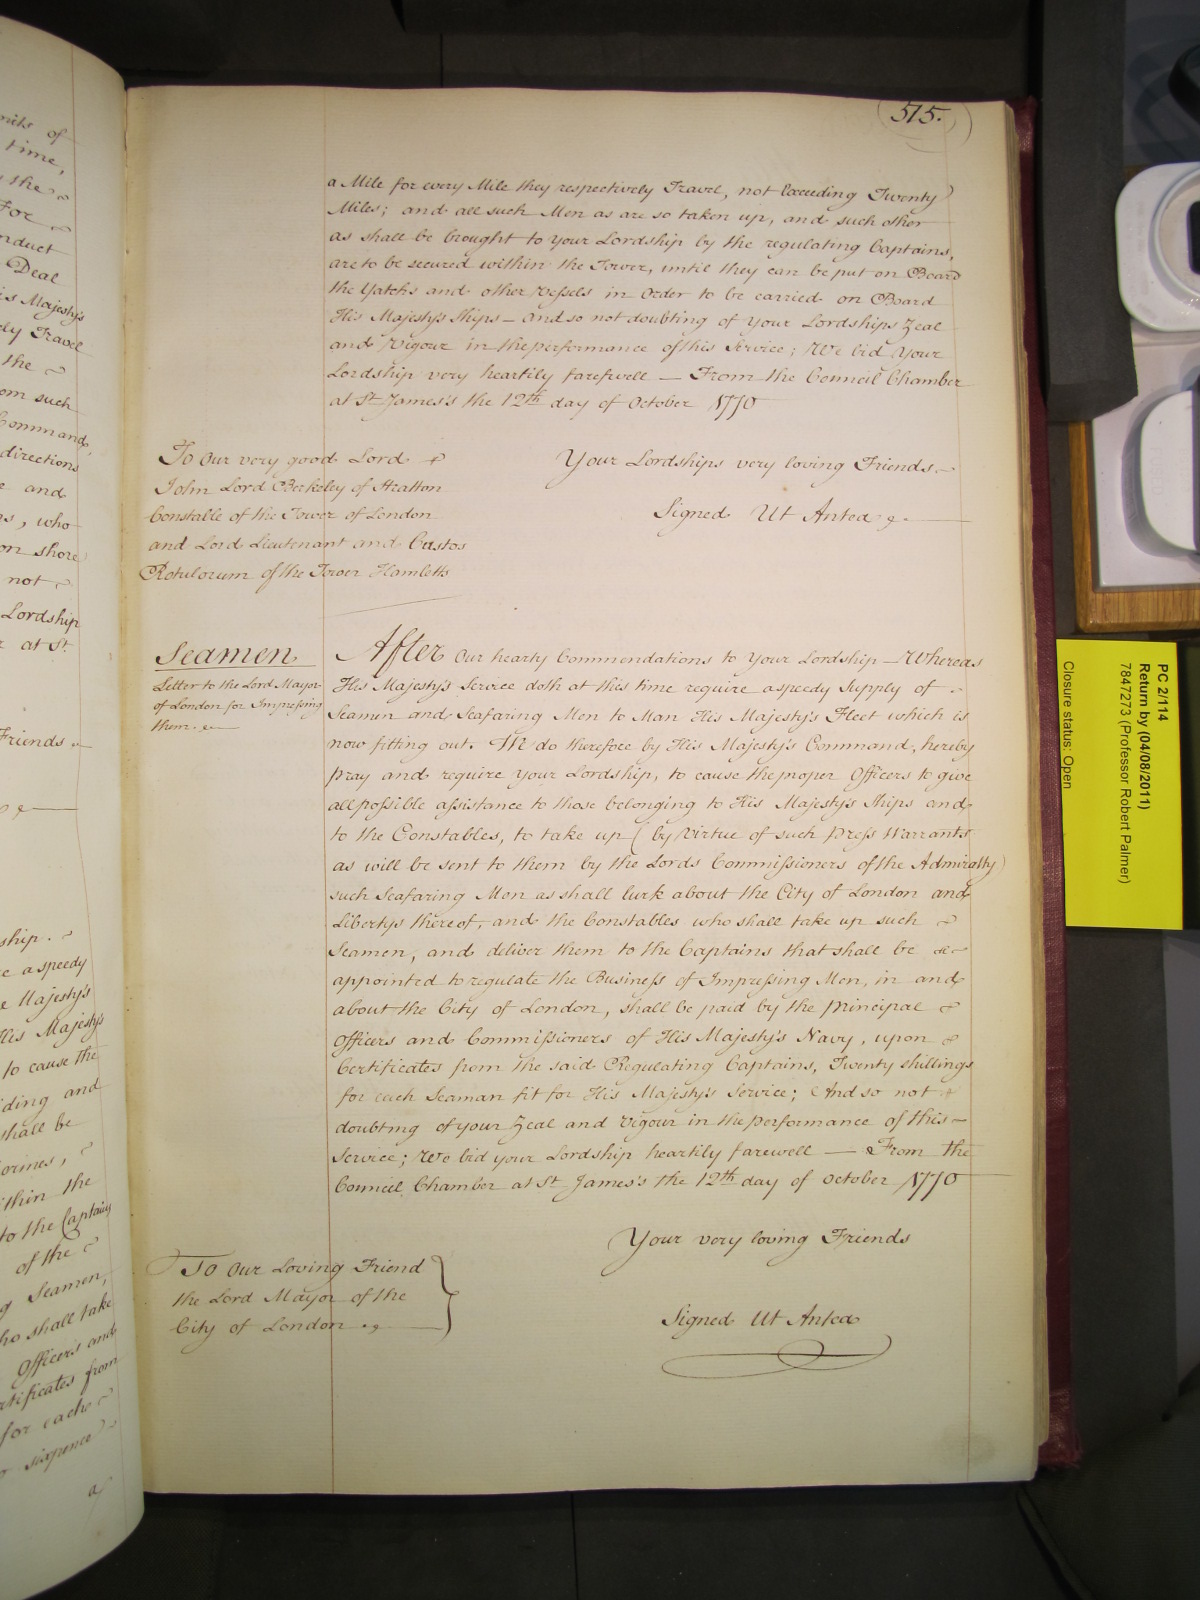 515.
a Mile for every Mile they respectively Travel, not Exceeding Twenty
Miles; and all such Men as are so taken up, and such other
as shall be brought to your Lordship by the regulating Captains,
are to be secured within the Tower, until they can be put on Board
the Yatchs and other Vessels in Order to be carried on Board
His Majesty's Ships — And so not doubting of Your Lordships Zeal
and Vigour in the performance of this Service; We bid Your
Lordship very heartily farefwell — From the Council Chamber
at St. James's the 12th day of October 1770
To Our very good Lord
John Lord Berkeley of Stratton
Constable of the Tower of London
and Lord Lieutenant and Custos
Rotulorum of the Tower Hamletts
Your Lordships very loving Friends.
Signed Ut Antea
Seamen
Letter to the Lord Mayor
of London for Impressing
them.
After Our hearty Commendations to Your Lordship — Whereas
His Majesty's Service doth at this time require a speedy Supply of
Seamen and Seafaring Men to Man His Majesty's Fleet which is
now fitting out. We do therefore by His Majesty's Command, hereby
pray and require your Lordship, to cause the proper Officers to give
all possible assistance to those belonging to His Majesty's Ships and
to the Constables, to take up (by Virtue of such Press Warrants
as will be sent to them by the Lords Commissioners of the Admiralty)
such Seafaring Men as shall lurk about the City of London and
Libertys thereof, and the Constables who shall take up such
Seamen, and deliver them to the Captains that shall be
appointed to regulate the Business of Impressing Men, in and
about the City of London, shall be paid by the Principal
Officers and Commissioners of His Majesty's Navy, upon
Certificates from the said Regulating Captains, Twenty shillings
for each Seaman fit for His Majesty's Service; And so not
doubting of your Zeal and Vigour in the performance of this
Service; We bid your Lordship heartily farewell — From the
Council Chamber at St. James's the 12th day of October 1770
Your very loving Friends
To Our Loving Friend
the Lord Mayor of the
City of London
Signed Ut Antea
PC 2/114
Return by (04/08/2011)
7847273 (Professor Robert Palmer)
Closure status: Open
of
time,
the
For
Deal
Majesty's
Travel
the
such
Command,
directions
and
who
on shore
not
Lordship
at St.
Friends
ship.
a speedy
Majesty's
His Majesty's
to cause the
and
shall be
within the
to the Captains
of the
Seamen,
who shall take
Officers and
from
for each
sixpence
a